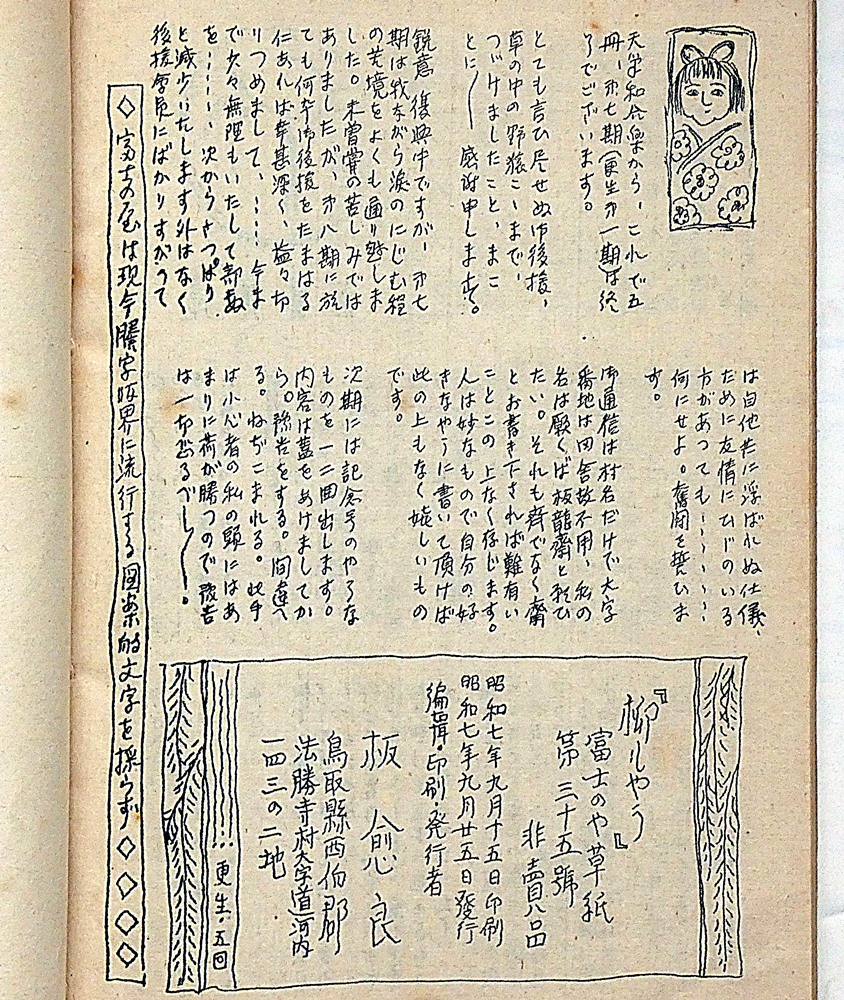 天学和合集から、これで五
冊、㐧七期（更生㐧一期）は終
りでございます。
とても言ひ尽せぬ御後援、
草の中の野猿こゝまで、
つゞけましたこと、まこ
とに〱感謝申します。
鋭意復興中ですが、㐧七
期は我ながら涙のにじむ程
の苦境をよくも通り越しま
した。未曽嘗の苦しみでは
ありましたが、㐧八期に於
ても何卒御後援をたまはる
仁あれば幸甚深く、益々切
りつめまして、……今ま
で欠々無理もいたして部数
を……、次からさつぱり
と減少いたします外はなく
後援会員にばかりすがつて
は自他共に浮ばれぬ仕儀、
ために友情にひゞのいる
方があつても………
何にせよ。奮闘を誓ひま
す。
御通信は村名だけで大字
番地は田舎故不用、私の
名は願くば板龍齋と願ひ
たい。それも斉でなく齋
とお書き下されば難有い
ことこの上なく存じます。
人は妙なもので自分の好
きなやうに書いて頂けば
此の上もなく嬉しいもの
です。
次期には記念号のやうな
ものを一二回出します。
内容は蓋をあけましてか
ら。豫告をする。間違へ
る。ねぢこまれる。此手
は小心者の私の頭にはあ
まりに荷が勝つので豫告
は一切せざるべし〱。
『柳しやう』
富士のや草紙
第三十五號
非賣品
昭和七年九月十五日印刷
昭和七年九月廿五日發行
編輯・印刷・発行者
板愈良
鳥取縣西伯郡
法勝寺村大字道河内
一四三の二地
更生・五回
◇富士の屋は現今謄字版界に流行する図案的文字を採らず◇◇◇◇